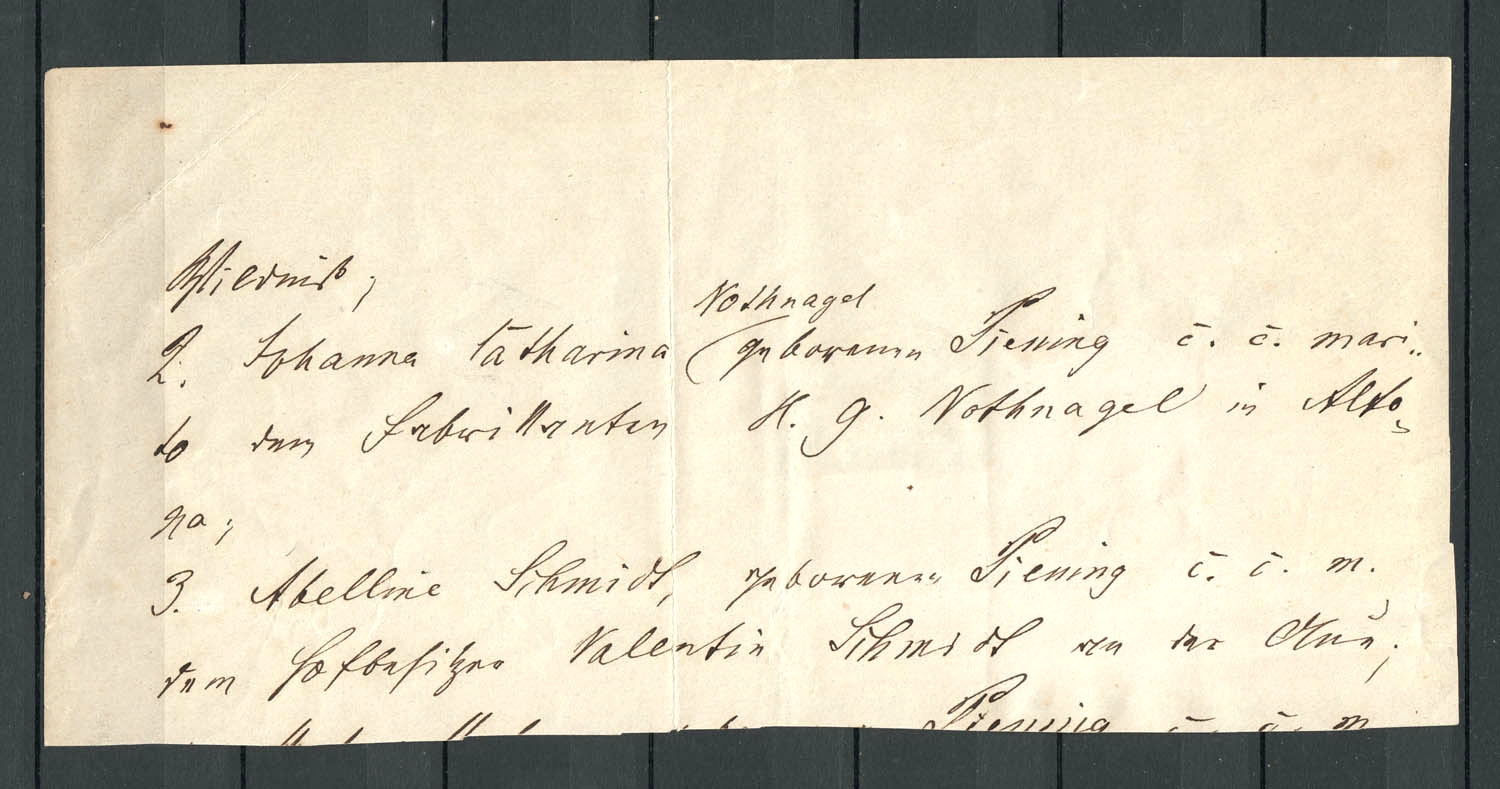 Wildniß;
Nothnagel
2. Johanna Catharina geborenen Piening c. c. mari„
to dem Fabrikanten H. G. Nothnagel in Alto„
na;
3. Abelline Schmidt, geborenen Piening c. c. m.
dem Hofbesitzer Valentin Schmidt an der Aue;
Piening c. c. m.